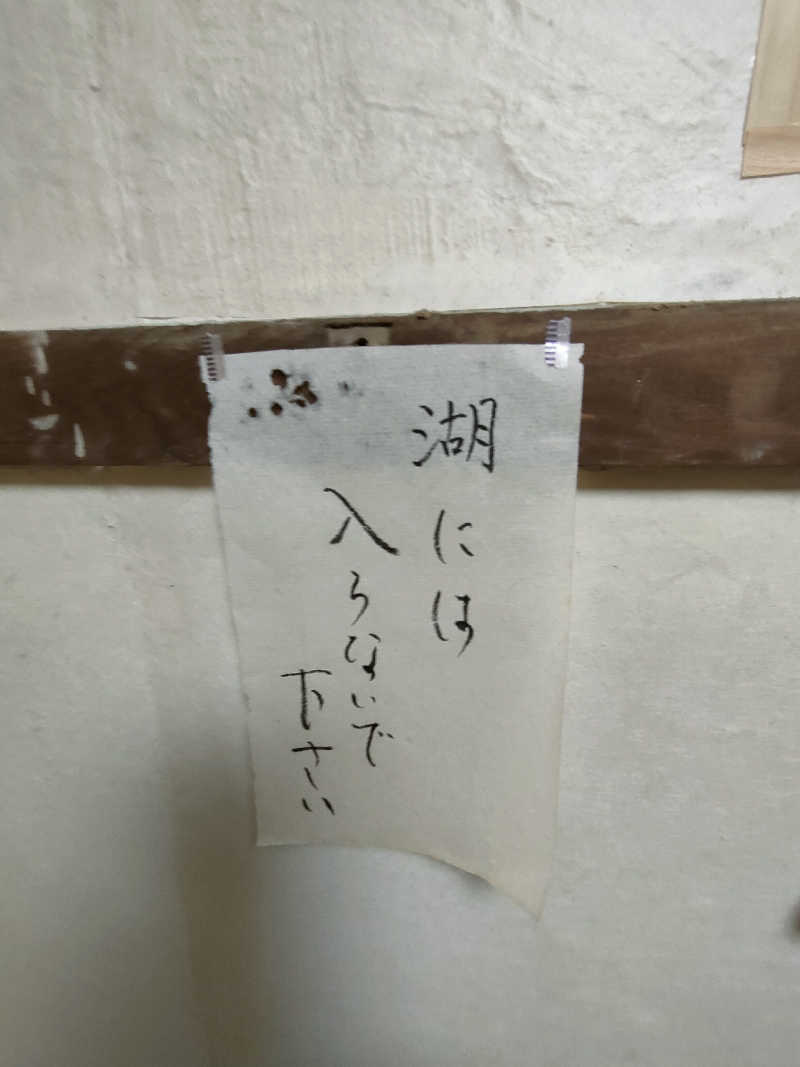 湖には
入らないで
下さい